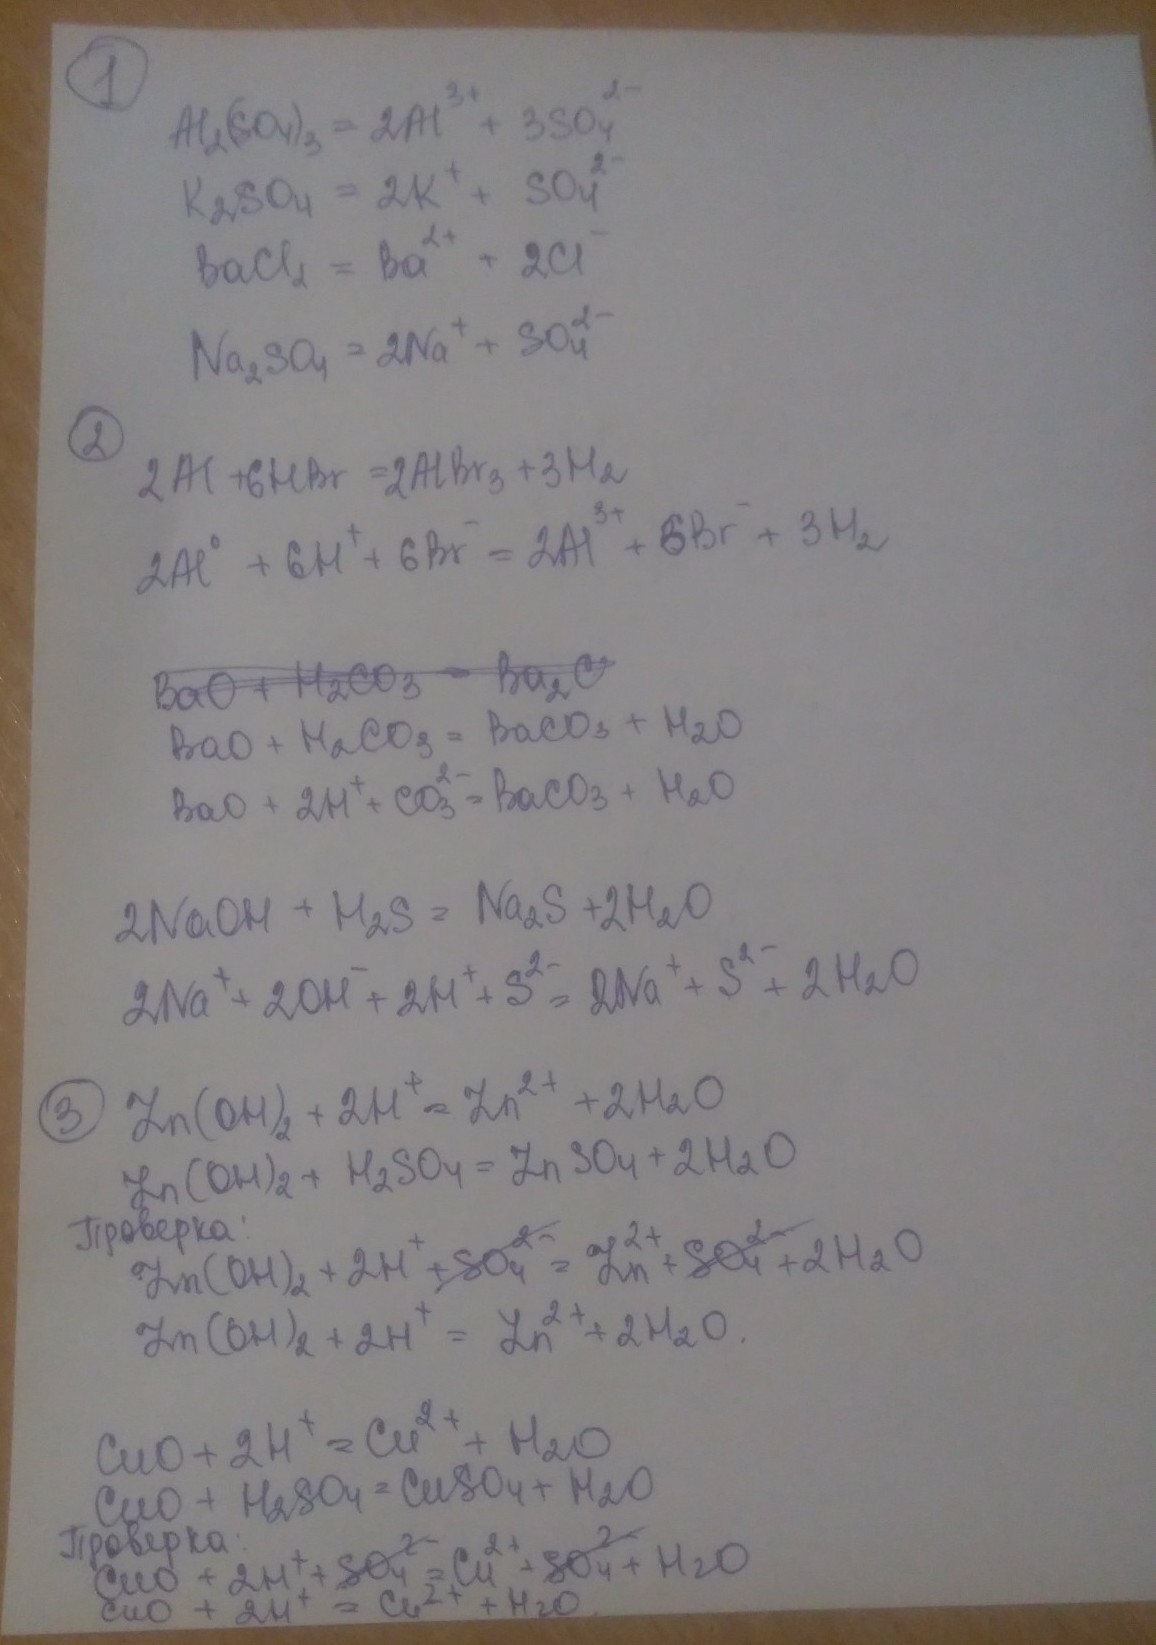 1
Al₂(SO₄)₃ = 2Al³⁺ + 3SO₄²⁻
K₂SO₄ = 2K⁺ + SO₄²⁻
BaCl₂ = Ba²⁺ + 2Cl⁻
Na₂SO₄ = 2Na⁺ + SO₄²⁻
2
2Al + 6HBr = 2AlBr₃ + 3H₂
2Al⁰ + 6H⁺ + 6Br⁻ = 2Al³⁺ + 6Br⁻ + 3H₂
BaO + H₂CO₃ = Ba₂C
BaO + H₂CO₃ = BaCO₃ + H₂O
BaO + 2H⁺ + CO₃²⁻ = BaCO₃ + H₂O
2NaOH + H₂S = Na₂S + 2H₂O
2Na⁺ + 2OH⁻ + 2H⁺ + S²⁻ = 2Na⁺ + S²⁻ + 2H₂O
3 Zn(OH)₂ + 2H⁺ = Zn²⁺ + 2H₂O
Zn(OH)₂ + H₂SO₄ = ZnSO₄ + 2H₂O
Проверка:
Zn(OH)₂ + 2H⁺ + SO₄²⁻ = Zn²⁺ + SO₄²⁻ + 2H₂O
Zn(OH)₂ + 2H⁺ = Zn²⁺ + 2H₂O.
CuO + 2H⁺ = Cu²⁺ + H₂O
CuO + H₂SO₄ = CuSO₄ + H₂O
Проверка:
CuO + 2H⁺ + SO₄²⁻ = Cu²⁺ + SO₄²⁻ + H₂O
CuO + 2H⁺ = Cu²⁺ + H₂O.